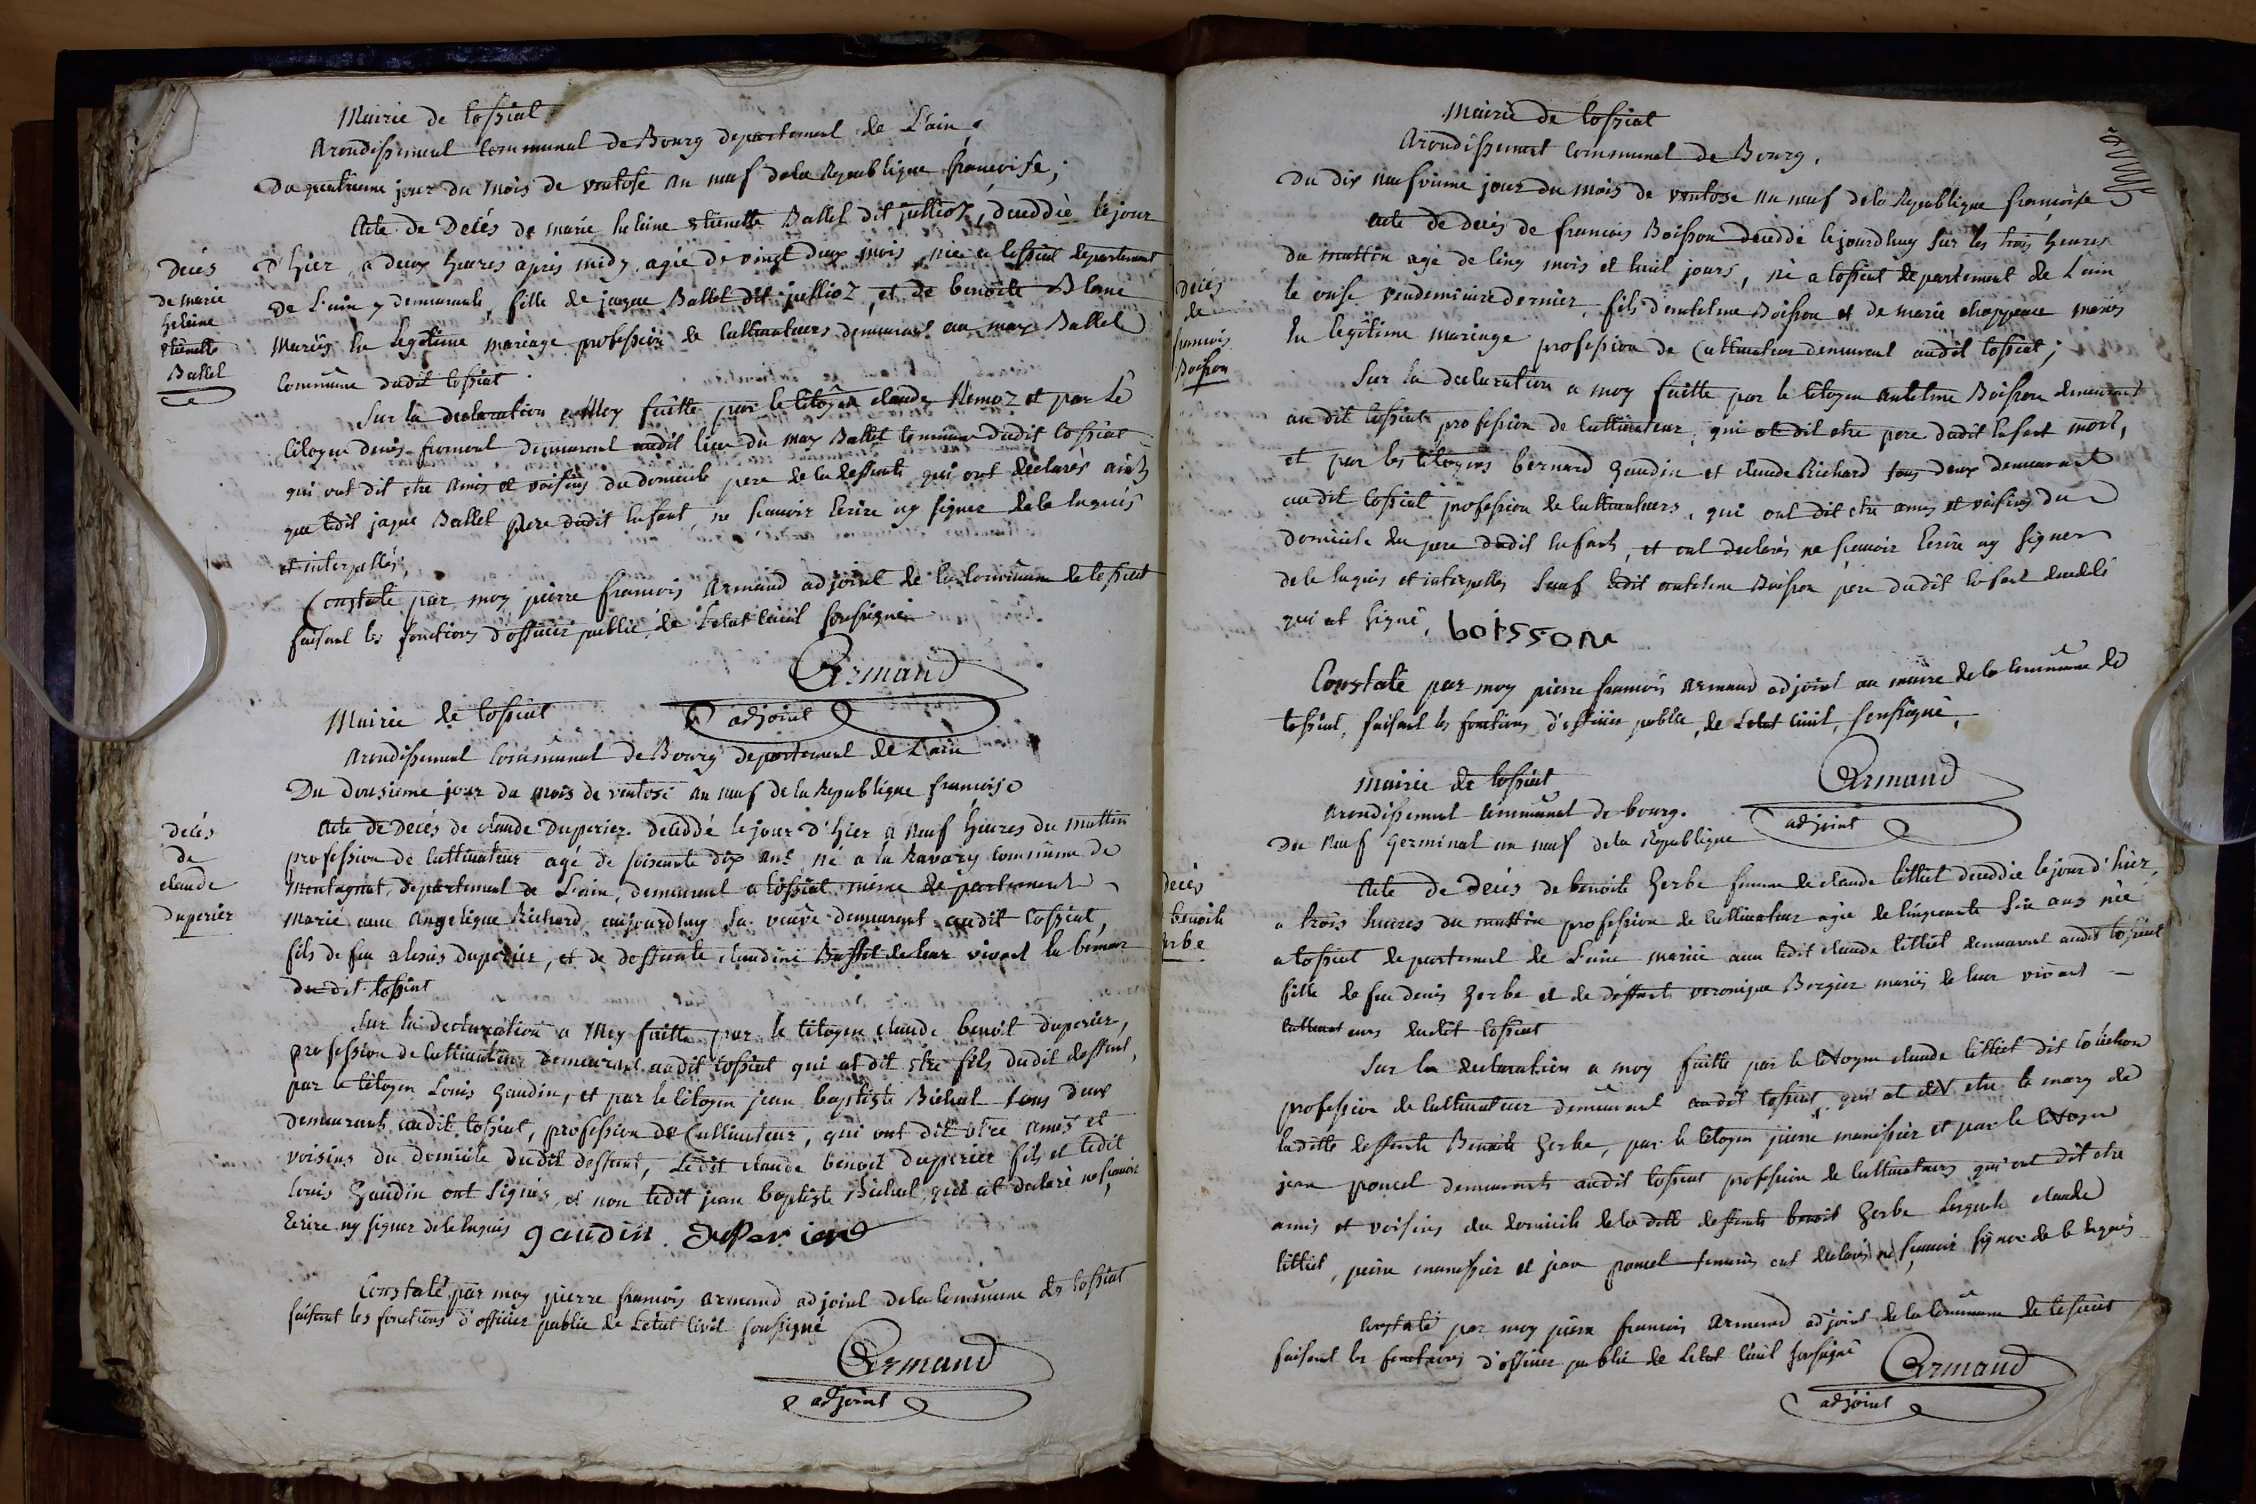 Mairie de tossiat
Arondissement communal de Bourg departement de L'ain,
Du quatrieme jour du mois de ventose an neuf dela Republique françoise,
Acte de Decés de marie heleine etienette Ballet dit julliot, deceddèe le jour
d'hier, a deux heures aprés midy, agée de vingt deux mois, née a tossiat departement
de L'ain y demeurante, fille de jaque Ballet dit julliot, et de benoite Blanc
Mariés En Legitime mariage profession de Cultivateurs demeurant au max Ballet
Commune dudit tossiat
decés
de marie
heleine
etienette
Ballet
Sur la declaration a Moy faitte par le Citoyen claude et par Le
Citoyen denis froment demeurant audit lieu du max Ballet commune dudit tossiat
qui ont dit etre amis et voisins du domicile pere de la deffunte qui ont declarés ainsy
que ledit jaque Ballet pere dudit Enfant, ne scauoir Ecrire ny signer de ce Enquis
et interpellés,
Constaté par moy pierre francois Armand adjoint de la Commune de tossiat
faisant les fonctions d'officier public de L'etat civil soussigné
Armand
adjoint
Mairie de tossiat
Arondissement Communal de Bourg departement de L'ain
Du dousieme jour du mois de ventose an neuf de la Republique françoise
Acte de Decés de claude Duperier deceddé le jour d'hier a neuf heures du mattin
profession de Cultivateur agé de soisante dix ans né a la Ravary commune de
Montagnat, departement de L'ain, demeurant a tossiat même departement
Marié auec Angelique Richard aujourdhuy sa veuve demeurant audit tossiat,
fils de feu alexis duperier, et de deffunte claudine Buffet de leur vivant
dudit tossiat
decés
de
claude
duperier
Sur la declaration a Moy faitte par le Citoyen claude benoit duperier,
profession de Cultivateur demeurant audit tossiat qui at dit etre fils dudit deffunt,
par le Citoyen Louis gaudin, et par le Citoyen jean baptiste Bichat tous deux
demeurants audit tossiat, profession de Cultivateur, qui ont dit être amis et
voisins du domicile dudit deffunt, Ledit claude benoit duperier fils et ledit
Louis gaudin ont signés, et non ledit jean baptiste Bichat, qui at declaré ne scauoir
Ecrire ny signer de ce Enquis gaudin duperier
Constaté par moy pierre francois armand adjoint dela Commune de tossiat
faisant les fonctions d'officier public de L'etat Civil soussigné
Armand
adjoint
Mairie de tossiat
Arondissement Communal de Bourg.
Du dix neufvieme jour du mois de ventose an neuf de la Republique françoise
Acte de decés de francois Boisson deceddé le jourdhuy sur les trois heures
du mattin agé de Cinq mois et huit jours, né a tossiat departement de L'ain
le onse vendemiaire dernier, fils d'antelme Boisson et de marie mariés
En legitime mariage profession de Cultivateur demeurant audit tossiat;
Decés
de
francois
Boisson
Sur la declaration a moy faitte par le Citoyen antelme Boisson demeurant
audit tossiat profession de Cultivateur, qui at dit etre pere dudit Enfant mort,
et par les Citoyens bernard gaudin et claude Richard tous deux demeurant
audit tossiat profession de Cultivateurs, qui ont dit etre amis et voisins du
domicile du pere dudit Enfant, et ont declarés ne scauoir Ecrire ny signer
de ce Enquis et interpellés sauf ledit antelme Boisson pere dudit Enfant deceddé
qui at signé, boisson
Constaté par moy pierre francois armand adjoint au maire de la Commune de
tossiat, faisant les fonctions d'officier public, de L'etat Civil, soussigné,
Armand
adjoint
mairie de tossiat
arondissement communal de bourg.
Du neuf germinal an neuf dela Republique
Acte de Decés de benoite gerbe femme de claude littiet deceddée le jour d'hier,
a trois heures du mattin profession de Cultivateur agée de Cinquante six ans née
a tossiat departement de L'ain mariée auec ledit claude littiet demeurant audit tossiat
fille de feu denis gerbe et de deffunte veronique Borgier mariés de leur vivant
Cultivateurs dudit tossiat
decés
benoite
erbe
Sur la declaration a moy faitte par le Citoyen claude littiet dit
profession de Cultivateur demeurant audit tossiat, qui at dit etre le mary de
laditte deffunte Benoite gerbe, par le Citoyen pierre manissier et par le Citoyen
jean poncet demeurants audit tossiat profession de Cultivateurs qui ont dit etre
amis et voisins du domicile de la ditte deffunte benoit gerbe Lesquels claude
littiet, pierre manissier et jean poncet temoins ont declarés ne scauoir signer de ce Enquis
Constaté par moy pierre francois armand adjoint de la Commune de tossiat
faisant les fonctions d'officier public de L'etat Civil soussigné
Armand
adjoint